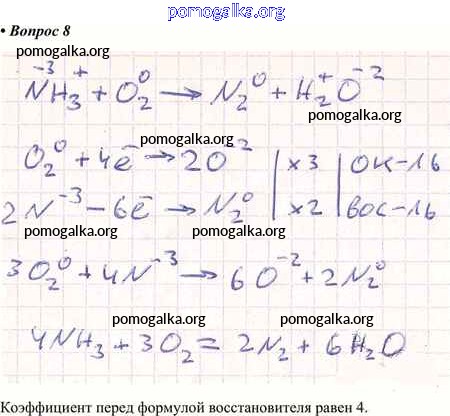 pomogalka.org
• Вопрос 8
pomogalka.org
N⁻³H₃⁺ + O₂⁰ → N₂⁰ + H₂⁺O⁻²
pomogalka.org
pomogalka.org
O₂⁰ + 4ē → 2O⁻² | ×3 | ок-ль
pomogalka.org
2N⁻³ − 6ē → N₂⁰ | ×2 | вос-ль
pomogalka.org
pomogalka.org
3O₂⁰ + 4N⁻³ → 6O⁻² + 2N₂⁰
pomogalka.org
pomogalka.org
4NH₃ + 3O₂ = 2N₂ + 6H₂O
pomogalka.org
Коэффициент перед формулой восстановителя равен 4.